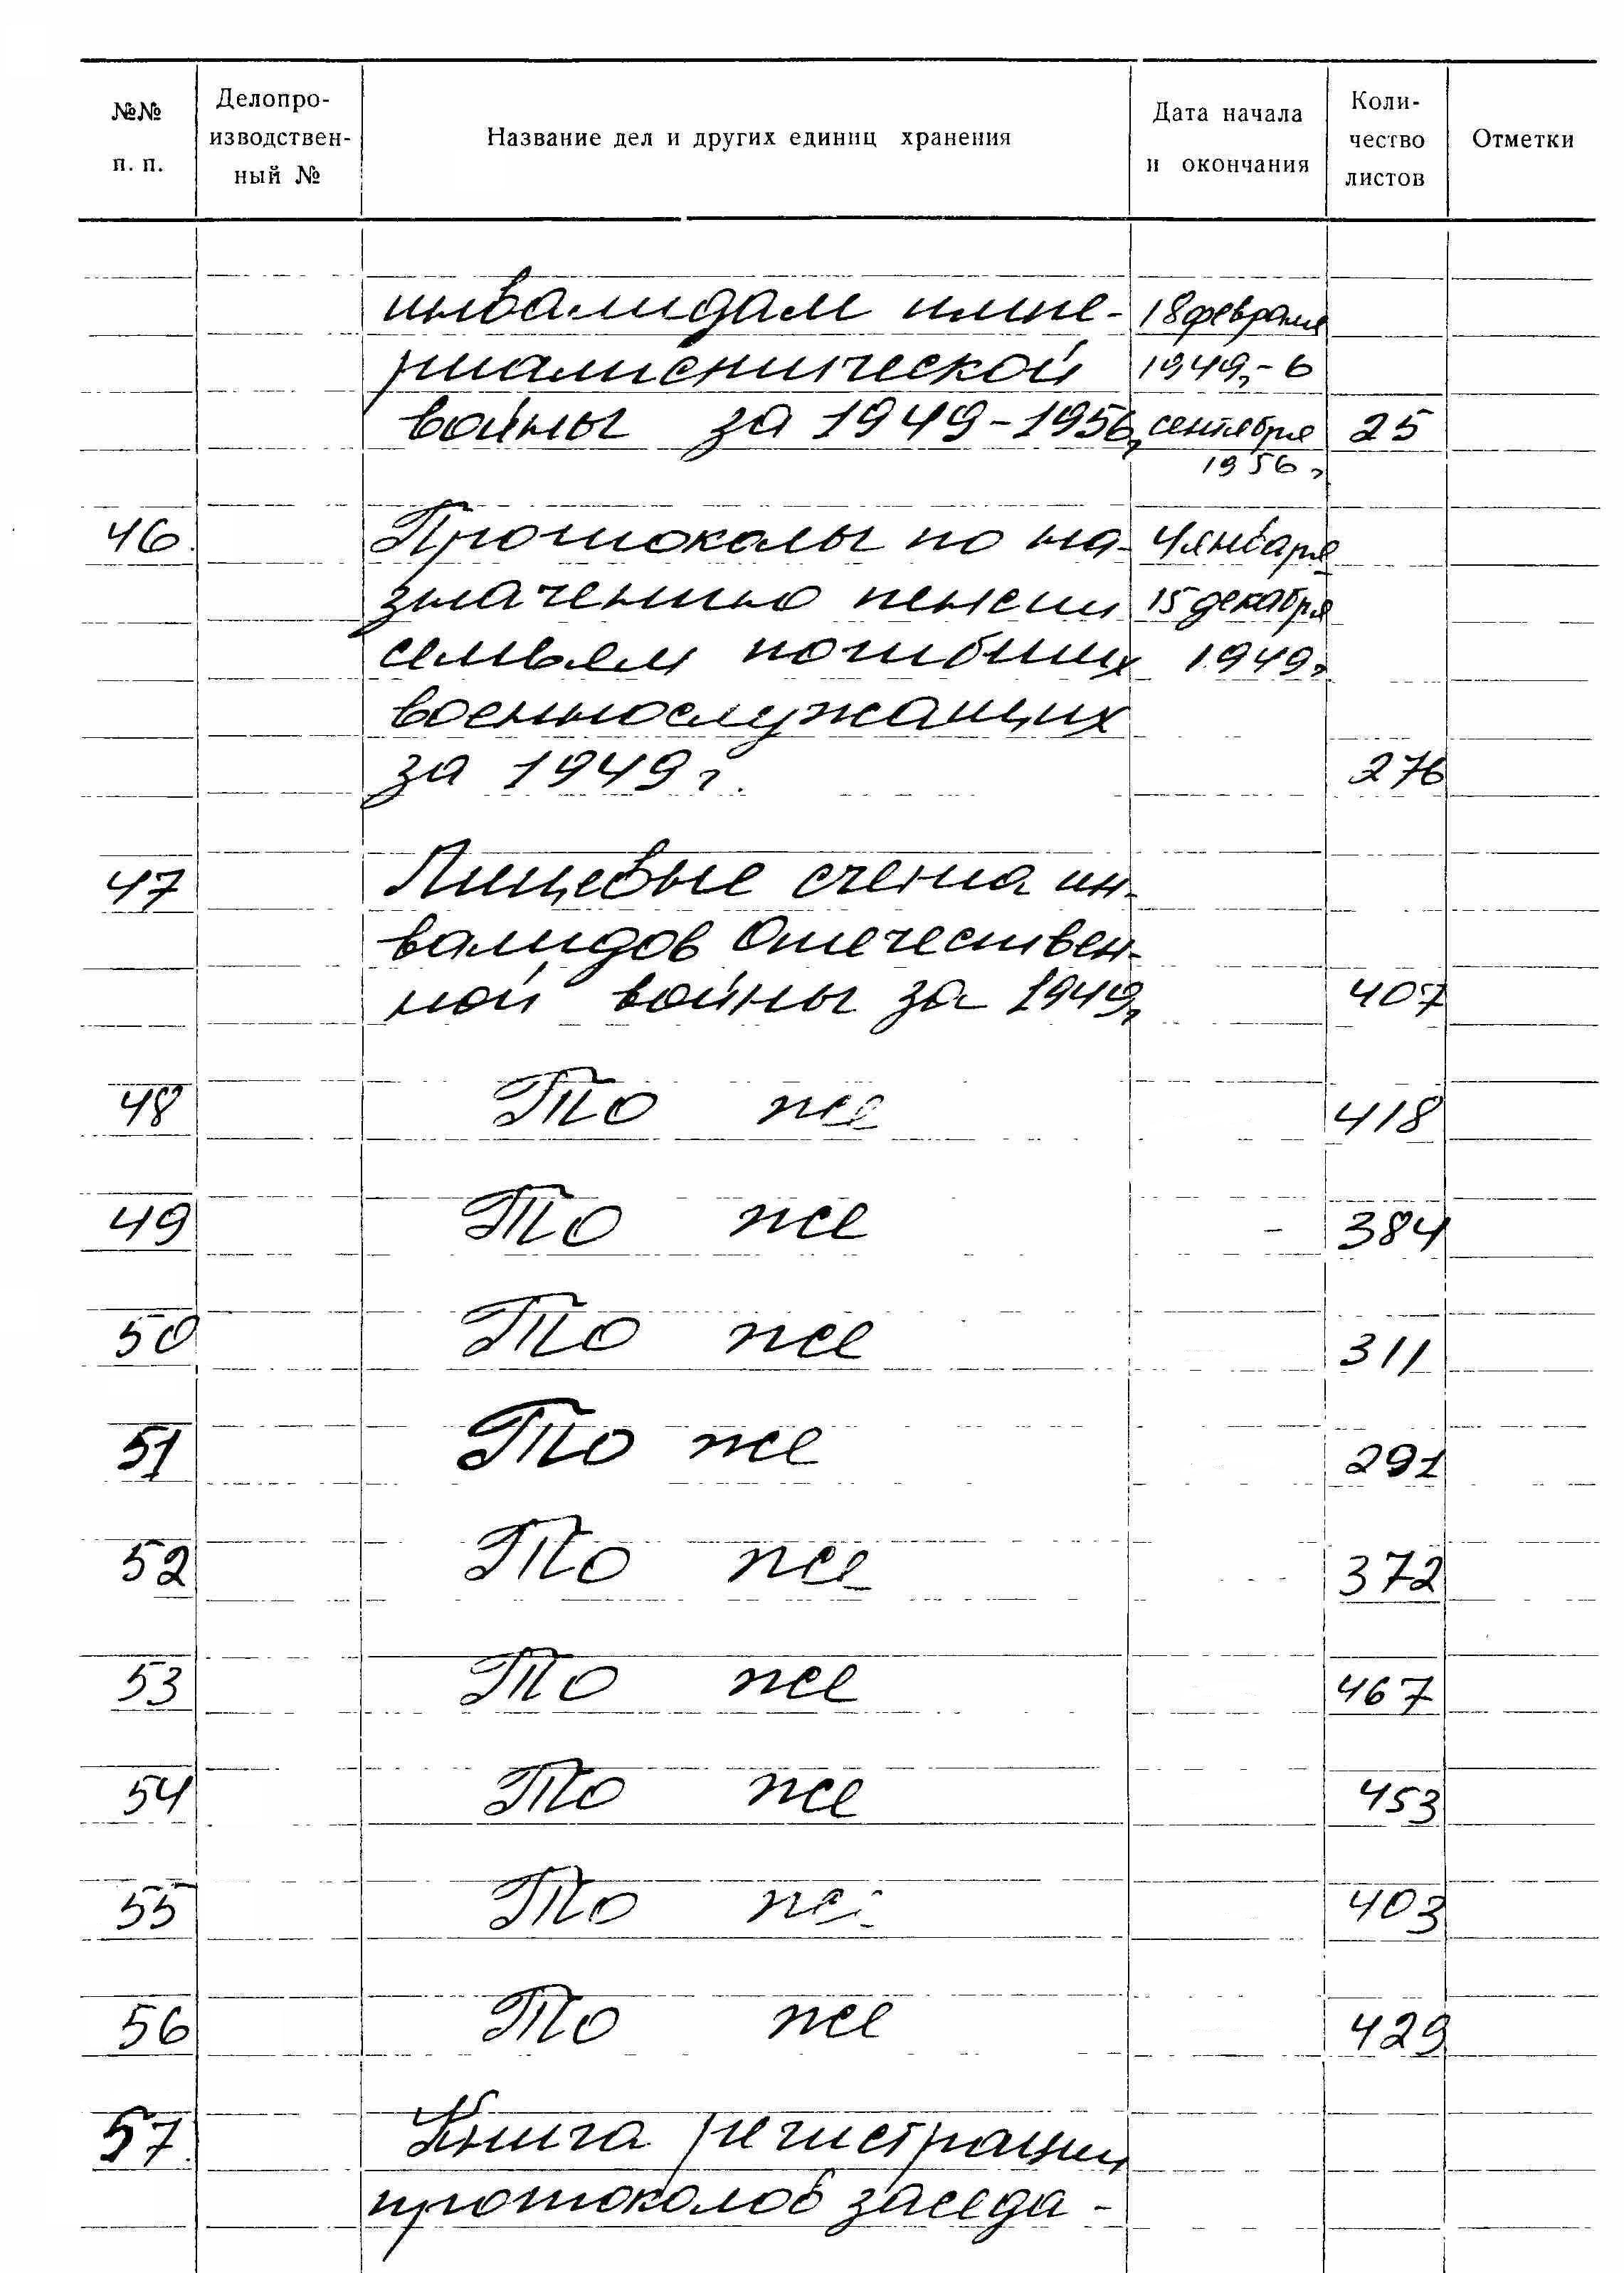 №№ п. п.
Делопро-
изводствен-
ный №
Название дел и других единиц хранения
Дата начала
и окончания
Коли-
чество
листов
Отметки
инвалидам импе- 18 февраля
риалистической 1949г.- 6
войны за 1949-1956г. сентября 25
1956г.
46. Протоколы по на- 4 января-
значению пенсии 15 декабря
семьям погибших 1949г.
военнослужащих
за 1949г. 276
47 Лицевые счета ин-
валидов Отечествен-
ной войны за 1949г. 407
48 То же 418
49 То же - 384
50 То же 311
51 То же 291
52 То же 372
53 То же 467
54 То же 453
55 То же 403
56 То же 429
57. Книга регистрации
протоколов заседа-